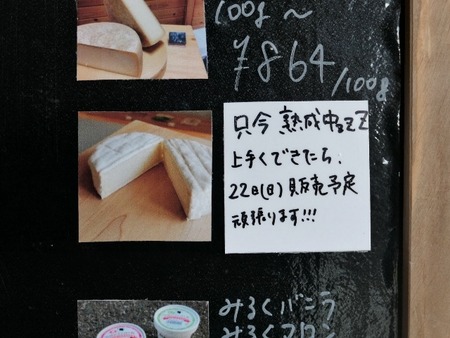 100g〜
¥864/100g
只今 熟成中zzZ
上手くできたら、
22日(日)販売予定
頑張ります!!!
みるくバニラ
みるくマロン